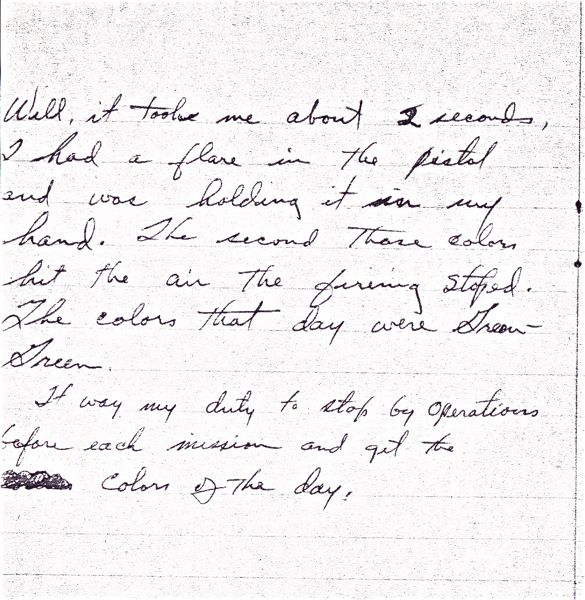 Well, it tooke me about 2 seconds,
I had a flare in the pistol
and was holding it in my
hand. The second those colors
hit the air the fireing stoped.
The colors that day were Green-
Green.
It way my duty to stop by Operations
before each mission and get the
colors of the day.